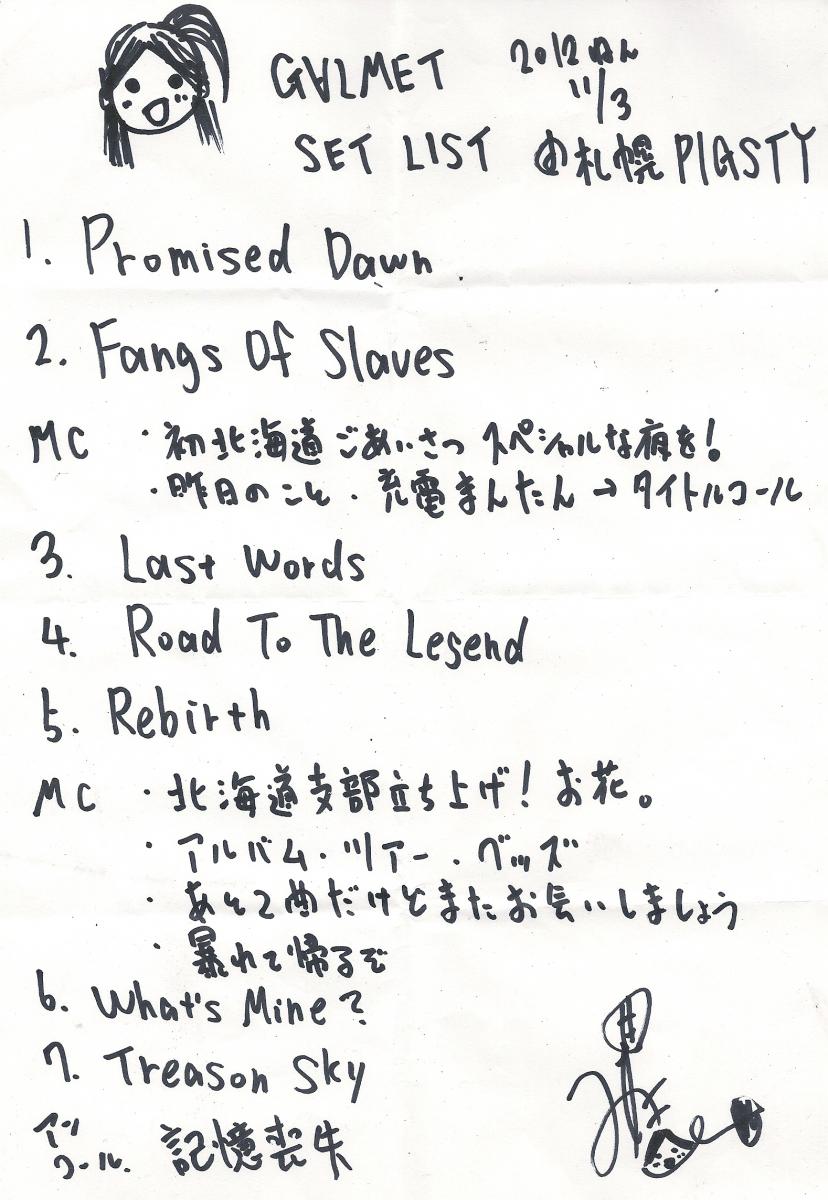 GALMET 2012ねん
11/3
SET LIST @札幌 PIGSTY
1. Promised Dawn
2. Fangs Of Slaves
MC ・初北海道ごあいさつ スペシャルな夜を!
・昨日のこと・充電まんたん→タイトルコール
3. Last Words
4. Road To The Legend
5. Rebirth
MC ・北海道支部立ち上げ!お花。
・アルバム・ツアー・グッズ
・あと2曲だけどまたお会いしましょう
・暴れて帰るぞ
6. What's Mine?
7. Treason Sky
アンコール. 記憶喪失